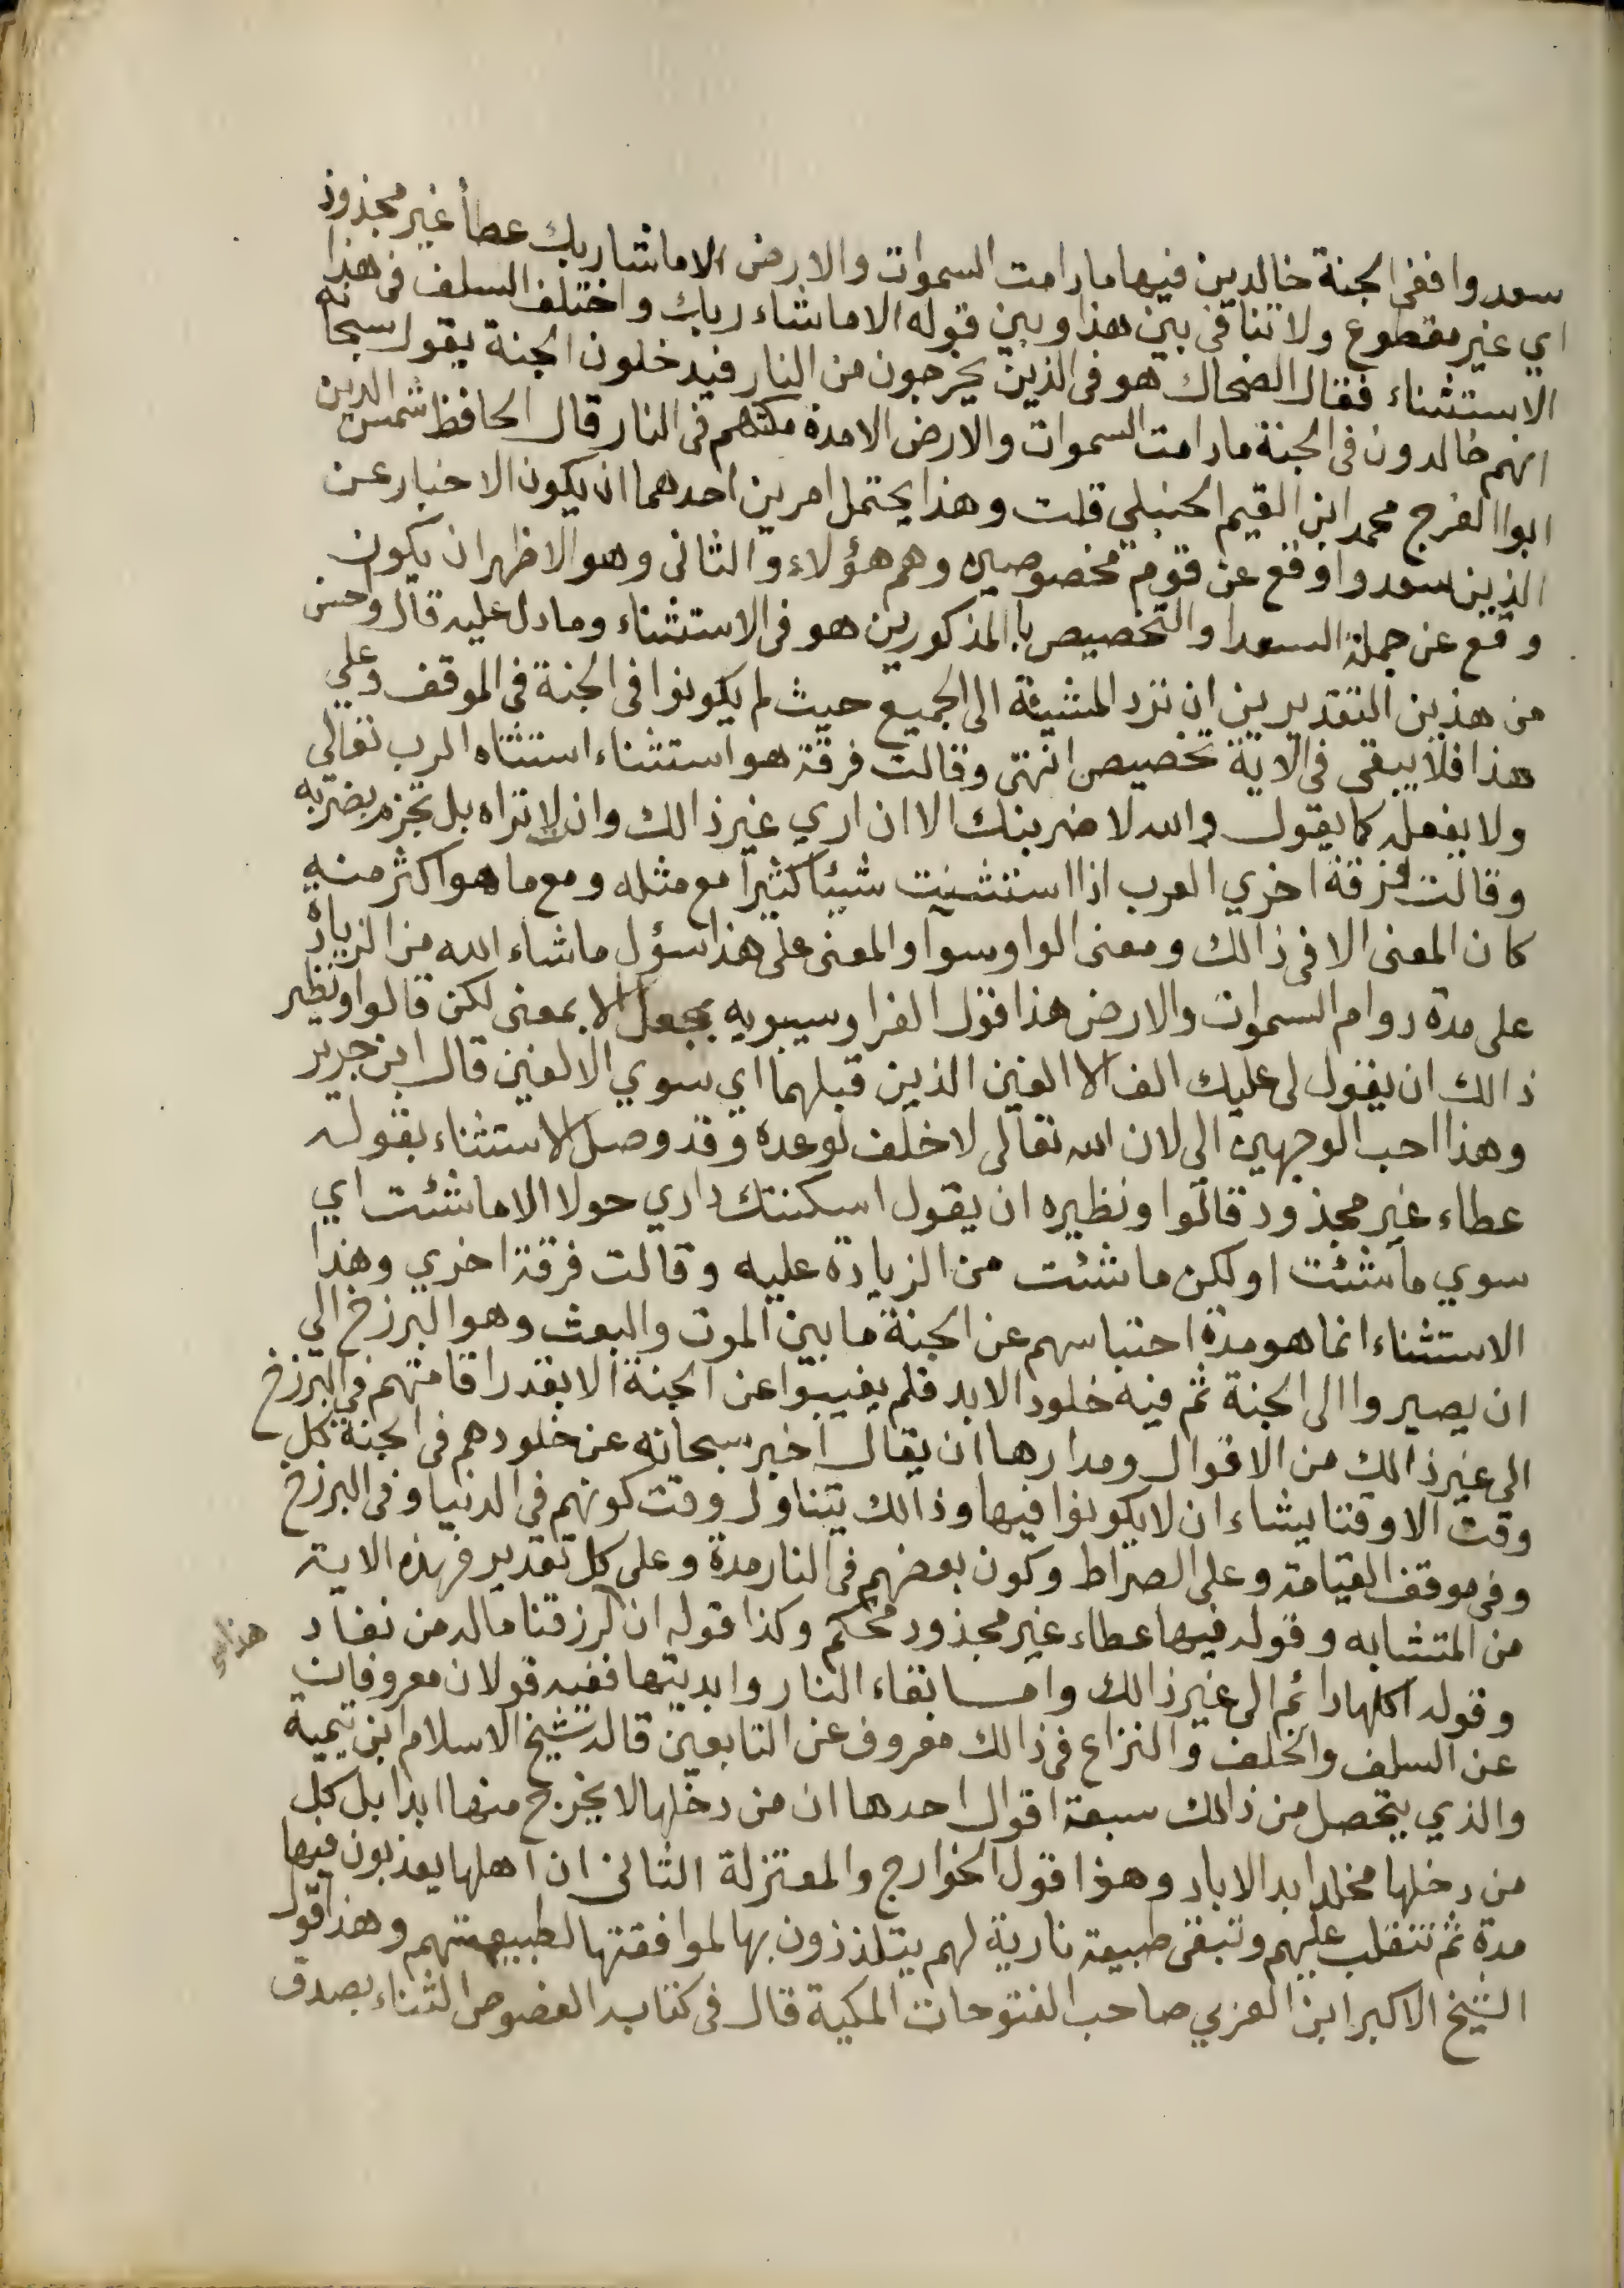 سعدوا ففي الجنة خالدين فيها مادامت السموات والارض الا ماشا ربك عطأ غير مجذوذ
اي غير مقطوع ولا تنافى بين هذا وبين قوله الا ماشاء ربك واختلف السلف فى هذا
الاستثناء فقال الضحاك هو فى الذين يخرجون من النار فيدخلون الجنة يقول سبحانه
انهم خالدون فى الجنة مادامت السموات والارض الا مدة مكثهم فى النار قال الحافظ شمس الدين
ابوا الفرج محمد ابن القيم الحنبلي قلت وهذا يحتمل امرين احدهما ان يكون الاخبار عن
الذين سعدوا وقع عن قوم مخصوصين وهم هؤلاء والثانى وهو الاظهر ان يكون
وقع عن جملة السعدا والتخصيص با المذكورين هو فى الاستثناء وما دل عليه قال واحسن
من هذين التقديرين ان ترد المشيئة الى الجميع حيث لم يكونوا فى الجنة فى الموقف وعلي
هذا فلا يبقى فى الاية تخصيص انتهى وقالت فرقة هو استثناء استثناه الرب تعالي
ولا يفعله كما يقول والله لا ضربنك الا ان اري غير ذالك وان لا تراه بل تجزم بضربه
وقالت فرقة اخري العرب اذا استثنيت شيئا كثيرا مع مثله ومع ما هو اكثر منه
كان المعنى الا فى ذالك ومعنى الواو سوآ والمعنى على هذا سؤل ماشاء الله من الزيادة
على مدة دوام السموات والارض هذا قول الفرا وسيبويه يجعل الا بمعنى لكن قالوا ونظير
ذالك ان يقول لى عليك الف الا الفين الذين قبلهما اي سوي الالفين قال ابن جرير
وهذا احب الوجهين الى لان الله تعالى لا خلف لوعده وقد وصل الاستثناء بقوله
عطاء غير مجذوذ قالوا ونظيره ان يقول اسكنتك داري حولا الا ماشئت اي
سوي ماشئت او لكن ماشئت من الزيادة عليه وقالت فرقة اخري وهذا
الاستثناء انما هو مدة احتباسهم عن الجنة ما بين الموت والبعث وهو البرزخ الي
ان يصيروا الى الجنة ثم فيه خلود الابد فلم يغيبوا عن الجنة الا بقدر اقامتهم فى البرزخ
الى غير ذالك من الاقوال ومدارها ان يقال اخبر سبحانه عن خلودهم فى الجنة كل
وقت الا وقتا يشاء ان لا يكونوا فيها وذالك يتناول وقت كونهم فى الدنيا وفى البرزخ
وفى موقف القيامة وعلى الصراط وكون بعضهم فى النار مدة وعلى كل تقدير فهذه الاية
من المتشابه وقوله فيها عطاء غير مجذوذ محكم وكذا قوله ان لرزقنا ماله من نفاد
وقوله اكلها دائم الى غير ذالك وامــا بقاء النار وابديتها ففيه قولان معروفان
عن السلف والخلف والنزاع فى ذالك معروف عن التابعين قال شيخ الاسلام ابن تيمية
والذي يتحصل من ذالك سبعة اقوال احدها ان من دخلها لا يخرج منها ابدا بل كل
من دخلها مخلد ابد الاباد وهذا قول الخوارج والمعتزلة الثانى ان اهلها يعذبون فيها
مدة ثم تنقلب عليهم وتبقى طبيعة نارية لهم يتلذذون بها لموافقتها لطبيعتهم وهذا قول
الشيخ الاكبر ابن العربي صاحب الفتوحات المكية قال فى كتابه الفصوص الثناء بصدق